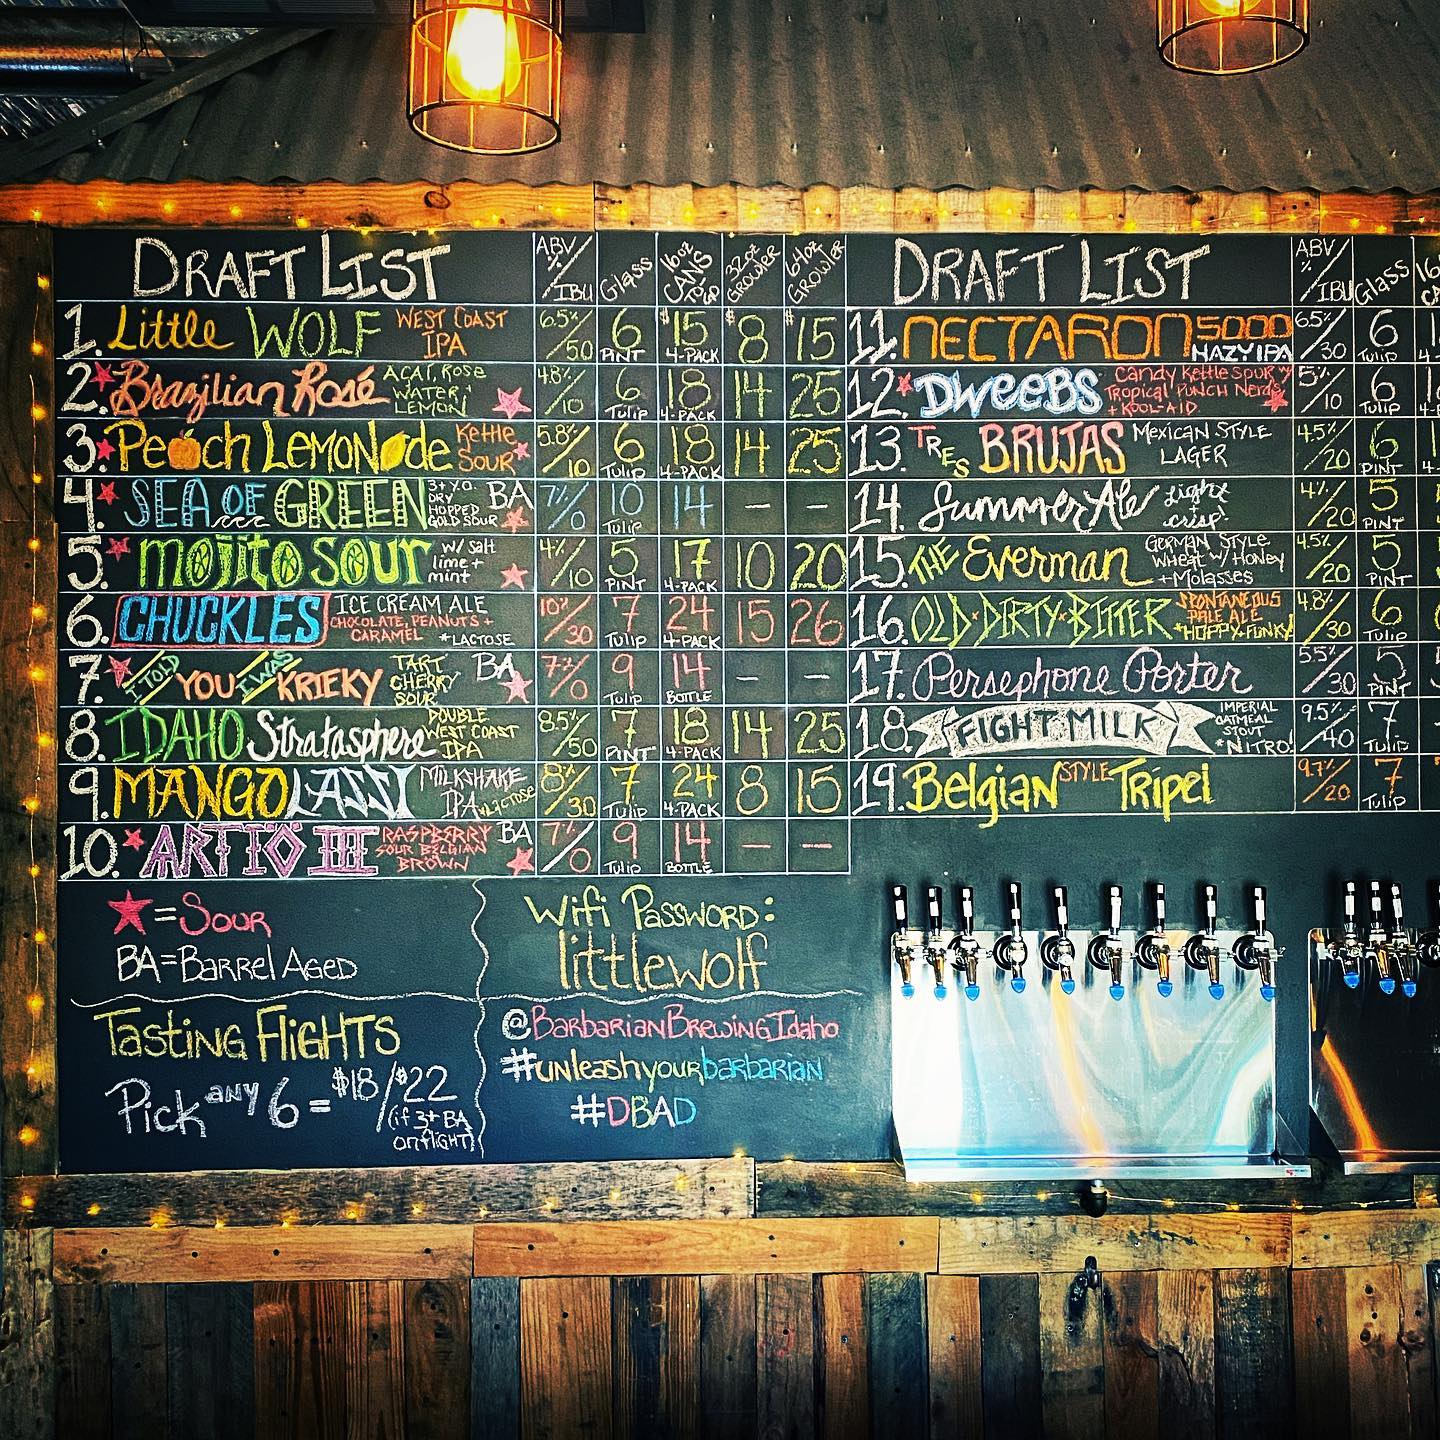 DRAFT LIST ABV % / IBU Glass 16oz CANS TO GO 32oz GROWLER 64oz GROWLER
1. Little WOLF WEST COAST IPA 6.5%/50 6 PINT $15 4-PACK $8 $15
2. Brazilian Rosé ACAI, Rose WATER + LEMON 4.8%/10 6 Tulip 18 4-PACK 14 25
3. Peach Lemonade Kettle SOUR 5.8%/10 6 Tulip 18 4-PACK 14 25
4. SEA OF GREEN 3+ Y.O. DRY HOPPED GOLD SOUR BA 7%/0 10 Tulip 14 — —
5. MOJITO SOUR w/ salt lime + mint 4%/10 5 PINT 17 4-PACK 10 20
6. CHUCKLES ICE CREAM ALE CHOCOLATE, PEANUTS + CARAMEL *LACTOSE 10%/30 7 Tulip 24 4-PACK 15 26
7. I TOLD YOU I WAS KRIEKY TART CHERRY SOUR BA 7%/0 9 Tulip 14 BOTTLE — —
8. IDAHO Stratasphere DOUBLE WEST COAST IPA 8.5%/50 7 PINT 18 4-PACK 14 25
9. MANGO LASSI MILKSHAKE IPA *LACTOSE 8%/30 7 Tulip 24 4-PACK 8 15
10. ARTIO III RASPBERRY SOUR BELGIAN BROWN BA 7%/0 9 Tulip 14 BOTTLE — —
★=SOUR
BA=BARREL AGED
Wifi PASSWORD:
littlewolf
TASTING FLIGHTS
Pick ANY 6 = $18/$22
(if 3+ BA
on flight)
@BarbarianBrewingIdaho
#unleashyourbarbarian
#DBAD
DRAFT LIST ABV % / IBU Glass
11. NECTARON 5000 HAZY IPA 6.5%/30 6 Tulip
12. DWEEBS Candy Kettle Sour w/ Tropical Punch Nerds + KOOL-AID 5%/10 6 Tulip
13. TRES BRUJAS Mexican STYLE LAGER 4.5%/20 6 PINT
14. Summer Ale Light + crisp! 4%/20 5 PINT
15. THE Everman GERMAN STYLE Wheat w/ Honey + Molasses 4.5%/20 5 PINT
16. OLD DIRTY BITTER SPONTANEOUS PALE ALE *HOPPY+FUNKY 4.8%/30 6 Tulip
17. Persephone Porter 5.5%/30 5 PINT
18. FIGHT MILK IMPERIAL OATMEAL STOUT *NITRO! 9.5%/40 7 Tulip
19. Belgian STYLE Tripel 9.7%/20 7 Tulip